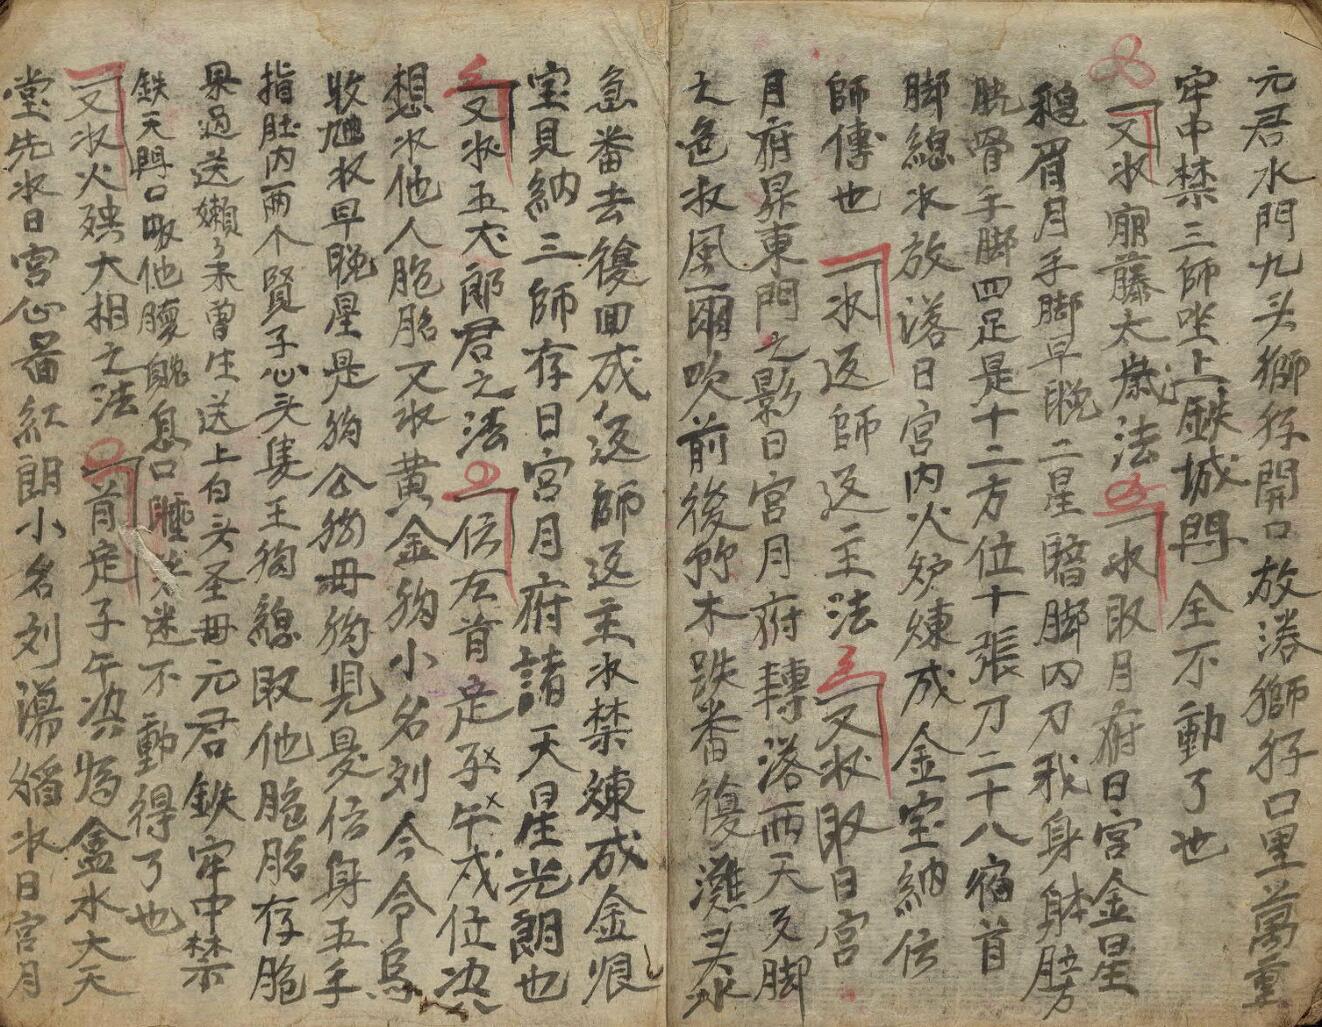 元君水門九头獅狩開口放落獅狩口里萬重
牢中禁三師坐上鉄城門全不動了也
又水廟藤太歲法 水取月府日宮金星
眉月手脚早晩二星暗脚内刀我身躰膀
胱骨手脚四足是十二方位十張刀二十八宿首
脚總水放落日宮内火炉煉成金室納位
師傅也 水返師返主法 又水取日宮
月府昇東門之影日宮月府轉落両天叉脚
大色水風雨吹前後行木跌番復灘头水
急番去復回成返師返主水禁煉成金銀
宝見納三師存日宮月府諸天星光朗也
又水五犬郎君之法 位左首走子午戌位决
想水他人胞胎又水黄金狗小名刘今令烏
收虵水早晩星是狗公狗毋狗児是位身五手
指肚内両个賢子心头隻王狗總取他胞胎存胞
果過送嬾了未曾生送上白头圣毋元君鉄牢中禁
鉄天門口吸他魂息口睡去迷不動得了也
又水火殃大相之法 首走子午决為盒水大天
堂先水日宮心番紅朗小名刘湯水日宮月